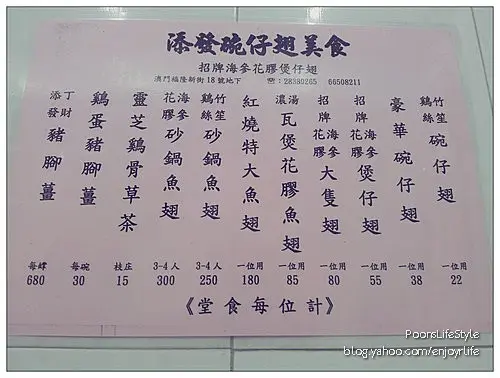 添發碗仔翅美食
招牌海參花膠煲仔翅
澳門福隆新街18號地下 ☎:28380265 66508211
竹笙鷄絲碗仔翅 一位用 22
豪華碗仔翅 一位用 38
招牌海參花膠煲仔翅 一位用 55
招牌海參花膠大隻翅 一位用 80
濃湯瓦煲花膠魚翅 一位用 85
紅燒特大魚翅 一位用 180
竹笙鷄絲砂鍋魚翅 3-4人 250
海參花膠砂鍋魚翅 3-4人 300
靈芝鷄骨草茶 枝庄 15
鷄蛋豬腳薑 每碗 30
添丁發財豬腳薑 每 680
《堂食每位計》
PoorsLifeStyle
blog.yahoo.com/enjoyrlife